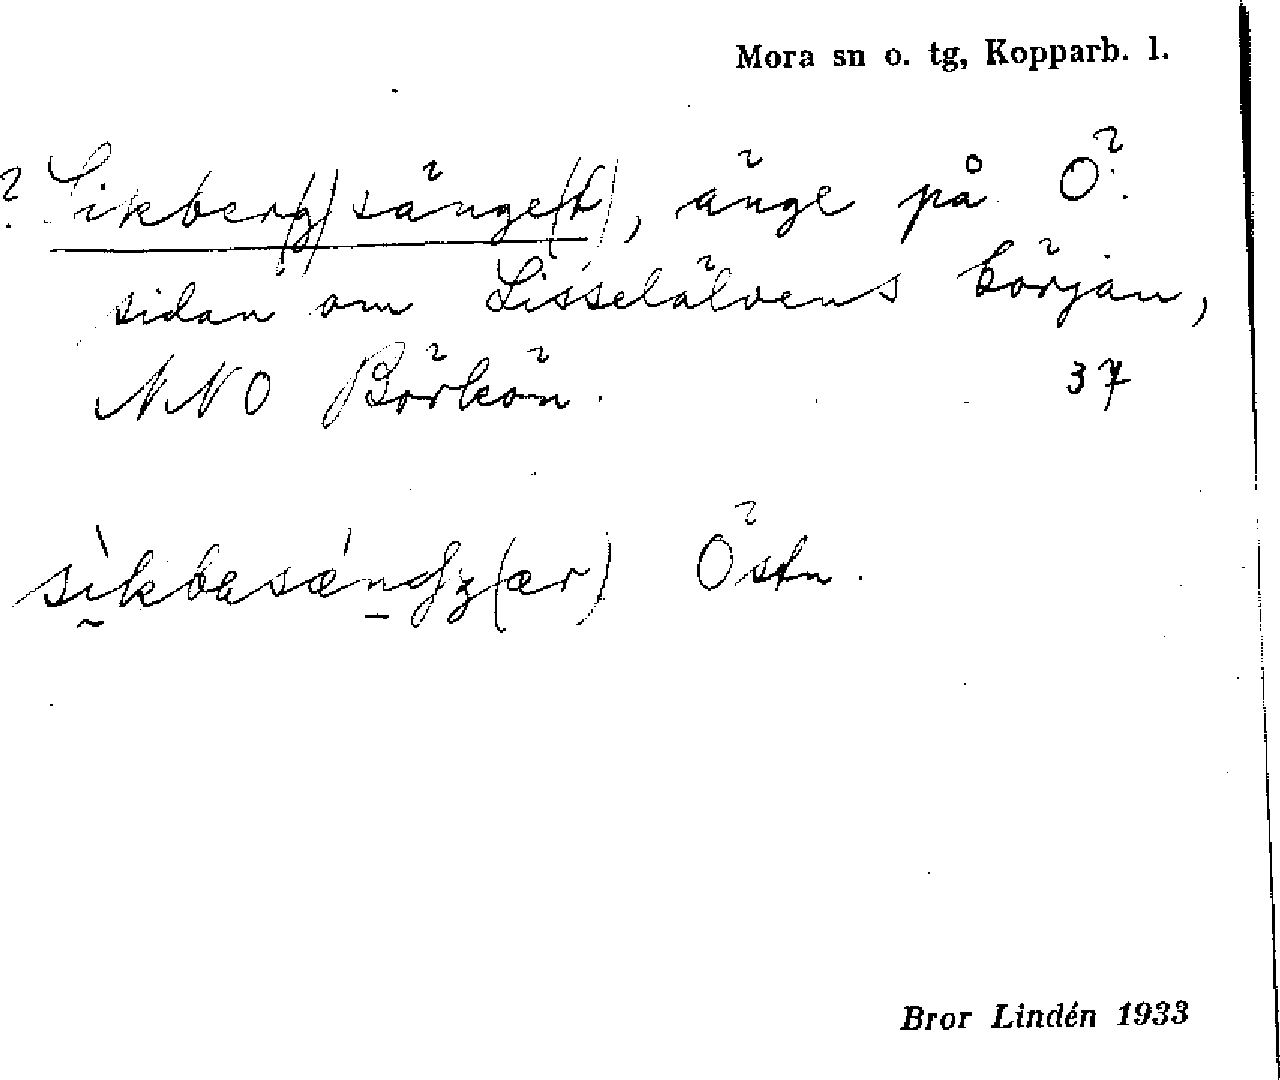 Mora sn o. tg, Kopparb. l.
? Sikber(g)sänge(t), änge på Ö.
sidan om Lisselälvens början,
NNO Börkön. 37
sìkbasǽndʒ(ær) Östn.
Bror Lindén 1933